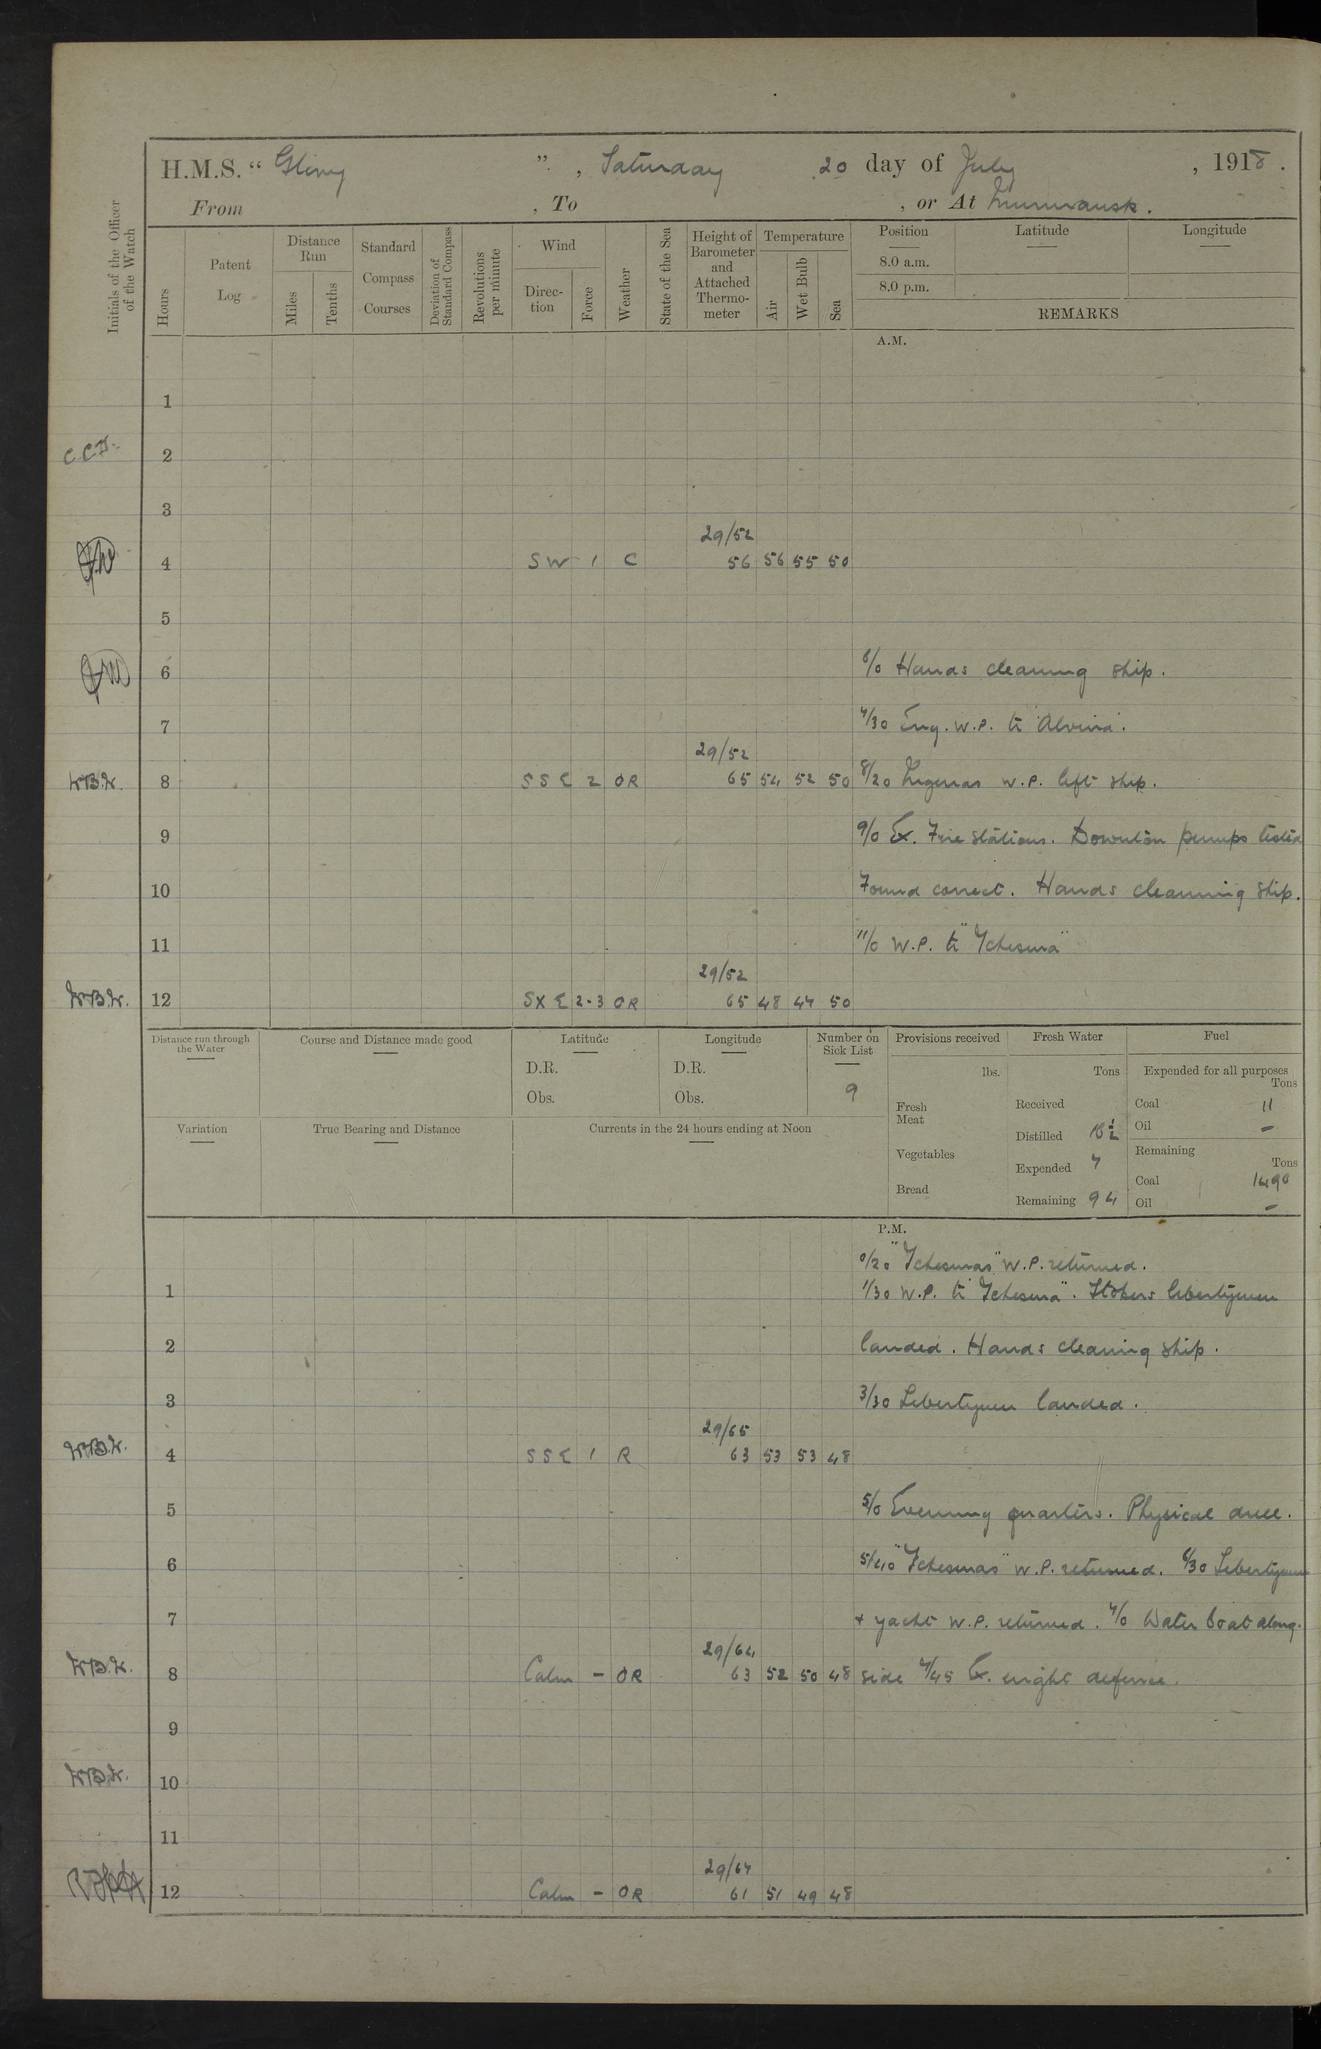 H.M.S. “ Glory ” , Saturday 20 day of July , 1918 .
From , To , or At Murmansk .
Initials of the Officer of the Watch
Hours
Patent Log
Distance Run
Miles
Tenths
Standard Compass Courses
Deviation of Standard Compass
Revolutions per minute
Wind
Direc-tion
Force
Weather
State of the Sea
Height of Barometer and Attached Thermo-meter
Temperature
Air
Wet Bulb
Sea
Position
8.0 a.m.
8.0 p.m.
Latitude
Longitude
REMARKS
A.M.
1
C.C.D. 2
3
29/52
4 SW 1 C 56 56 55 50
5
6 6/0 Hands cleaning ship.
7 7/30 Eng. W.P. to "Alvina".
29/52
W.B.W. 8 SSE 2 OR 65 54 52 50 8/20 W.P. left ship.
9 9/0 Ex. Fire stations. Downton pumps tested
10 Found correct. Hands cleaning ship.
11 11/0 W.P. to "Tchesma"
29/52
W.B.W. 12 SXE 2-3 OR 65 48 47 50
Distance run through the Water
Course and Distance made good
Latitude
D.R.
Obs.
Longitude
D.R.
Obs.
Number on Sick List
9
Variation
True Bearing and Distance
Currents in the 24 hours ending at Noon
Provisions received
lbs.
Fresh Meat
Vegetables
Bread
Fresh Water
Tons
Received
Distilled 18½
Expended 7
Remaining 94
Fuel
Expended for all purposes
Tons
Coal 11
Oil –
Remaining
Tons
Coal 1490
Oil –
P.M.
0/20 "Tchesmas" W.P. returned.
1 1/30 W.P. to "Tchesma". Stokers libertymen
2 landed. Hands cleaning ship.
3 3/30 Libertymen landed.
29/65
W.B.W. 4 SSE 1 R 63 53 53 48
5 5/0 Evening quarters. Physical drill.
6 5/40 "Tchesmas" W.P. returned. 6/30 Libertymen
7 + yacht W.P. returned. 7/0 Water boat along-
29/64
W.B.W. 8 Calm – OR 63 52 50 48 side 7/45 Ex. night defence.
9
W.B.W. 10
11
29/67
12 Calm – OR 61 51 49 48